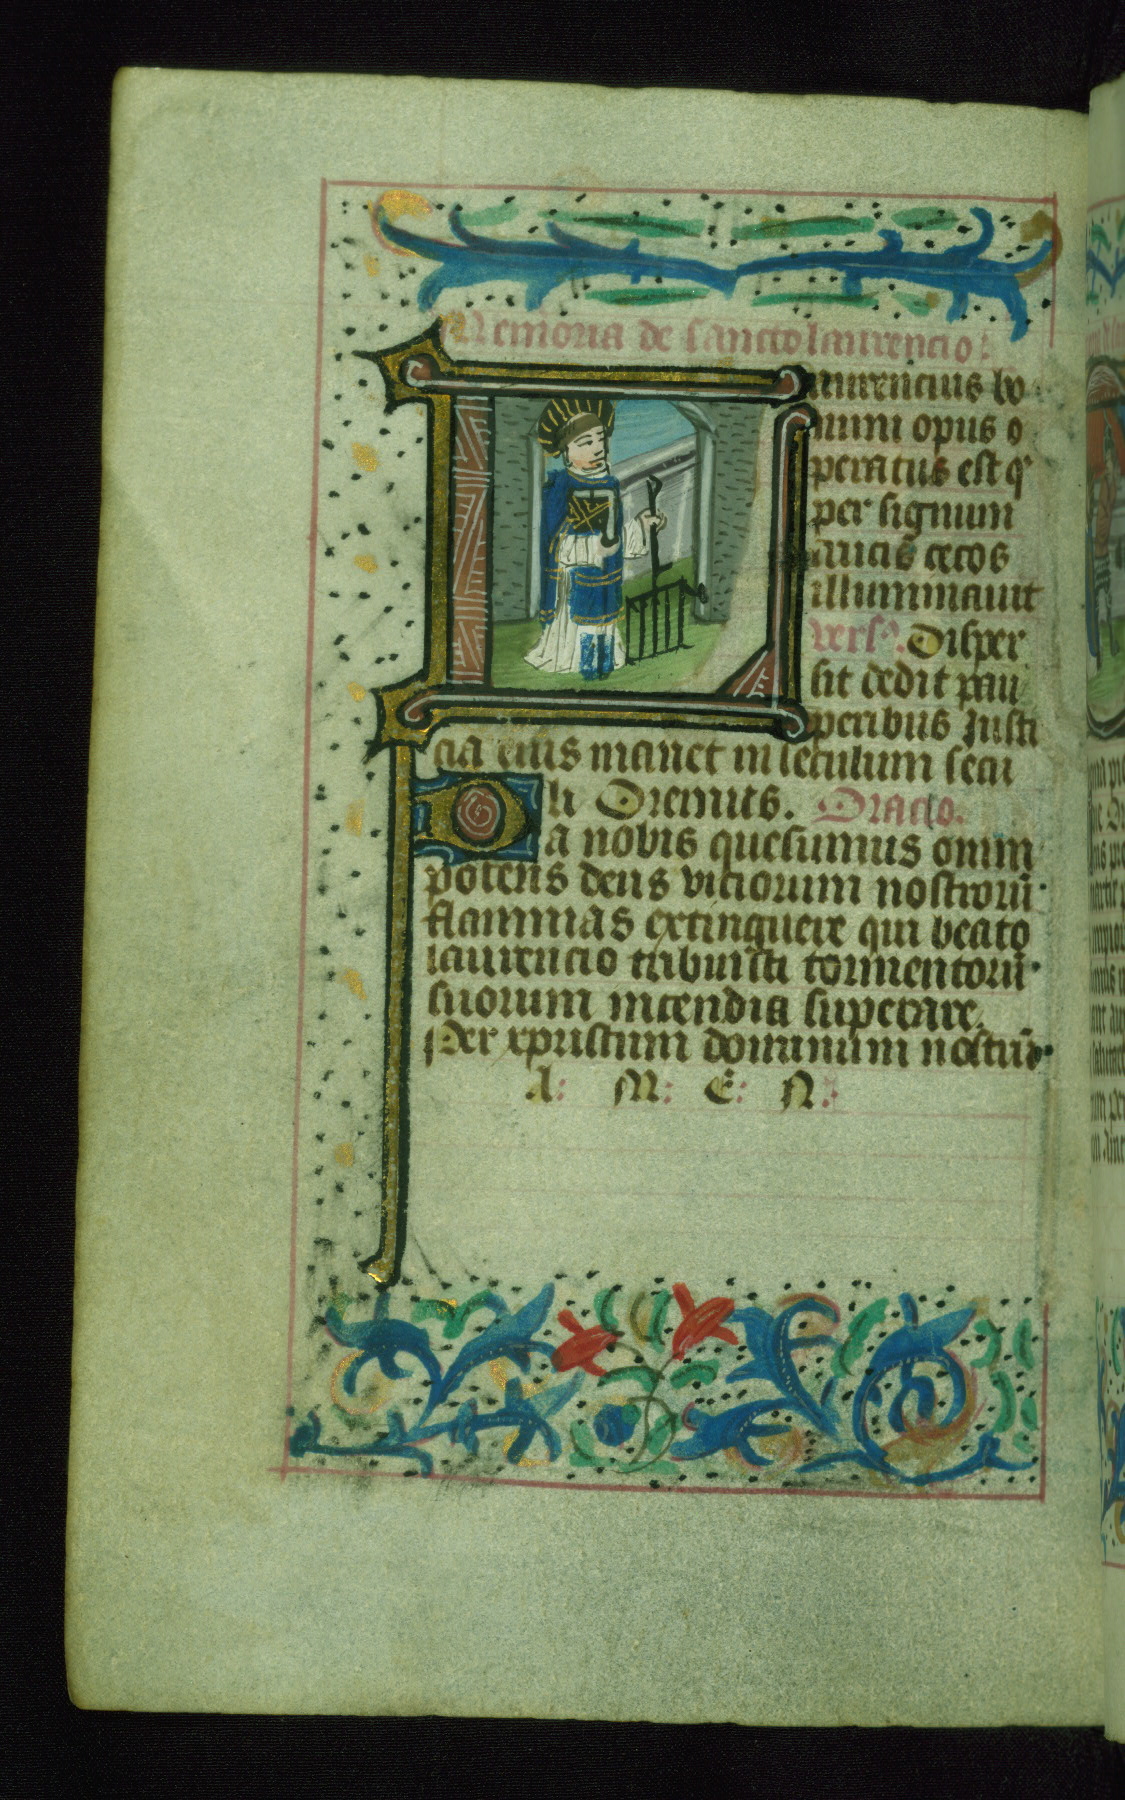 Memoria de sancto laurencio:
Laurencius bo
num opus o
peratus est qͥ
per signum
crucis cecos
illuminauit
vers. Disper
sit dedit pau
peribus Justi
cia eius manet in seculum secu
li Oremus. Oracio.
Da nobis quesumus omni
potens deus viciorum nostrorū
flammas extinguere qui beato
laurencio tribuisti tormentorū
suorum incendia superare.
Per xpristum dominum nostrū
A: M: E: N: